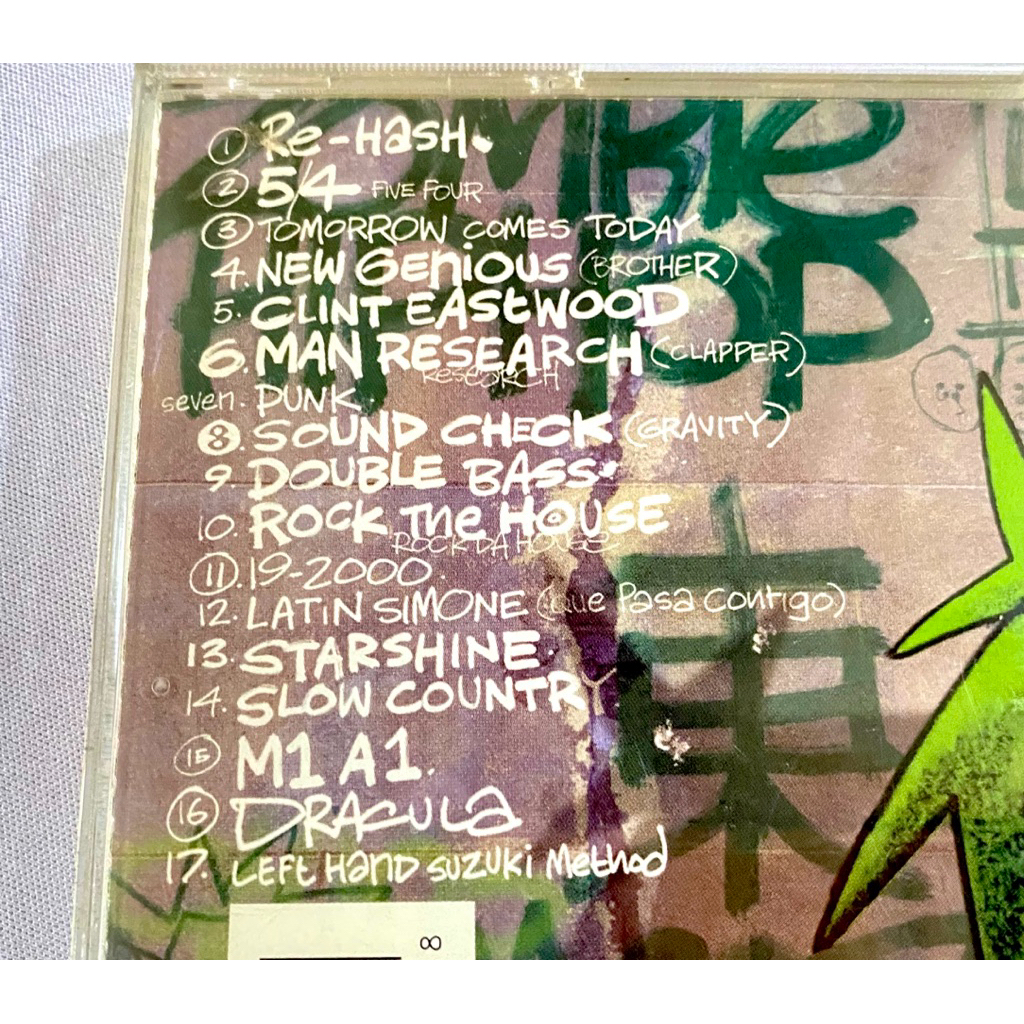 ZOMBIE
HIP HOP
1 Re-Hash.
2 5/4 FIVE FOUR
3 TOMORROW COMES TODAY
4. NEW Genious (BROTHER)
5. CLINT EASTWOOD
6. MAN RESEARCH (CLAPPER)
ReSEARCH
seven. PUNK.
8. SOUND CHECK (GRAVITY)
9 DOUBLE BASS.
10. ROCK THE HOUSE
ROCK DA HOUSE
11. 19-2000.
12. LATIN SIMONE (Que Pasa Contigo)
13. STARSHINE.
14. SLOW COUNTRY
15 M1 A1.
16 DRACULA
17. LEFT HAND SUZUKI METHOD
東
8